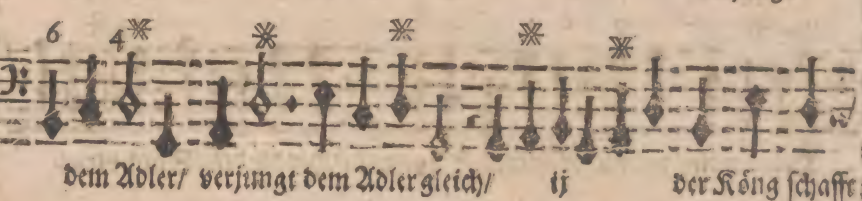 6 4
dem Adler/ verjungt dem Adler gleich/ ij der Köng schafft